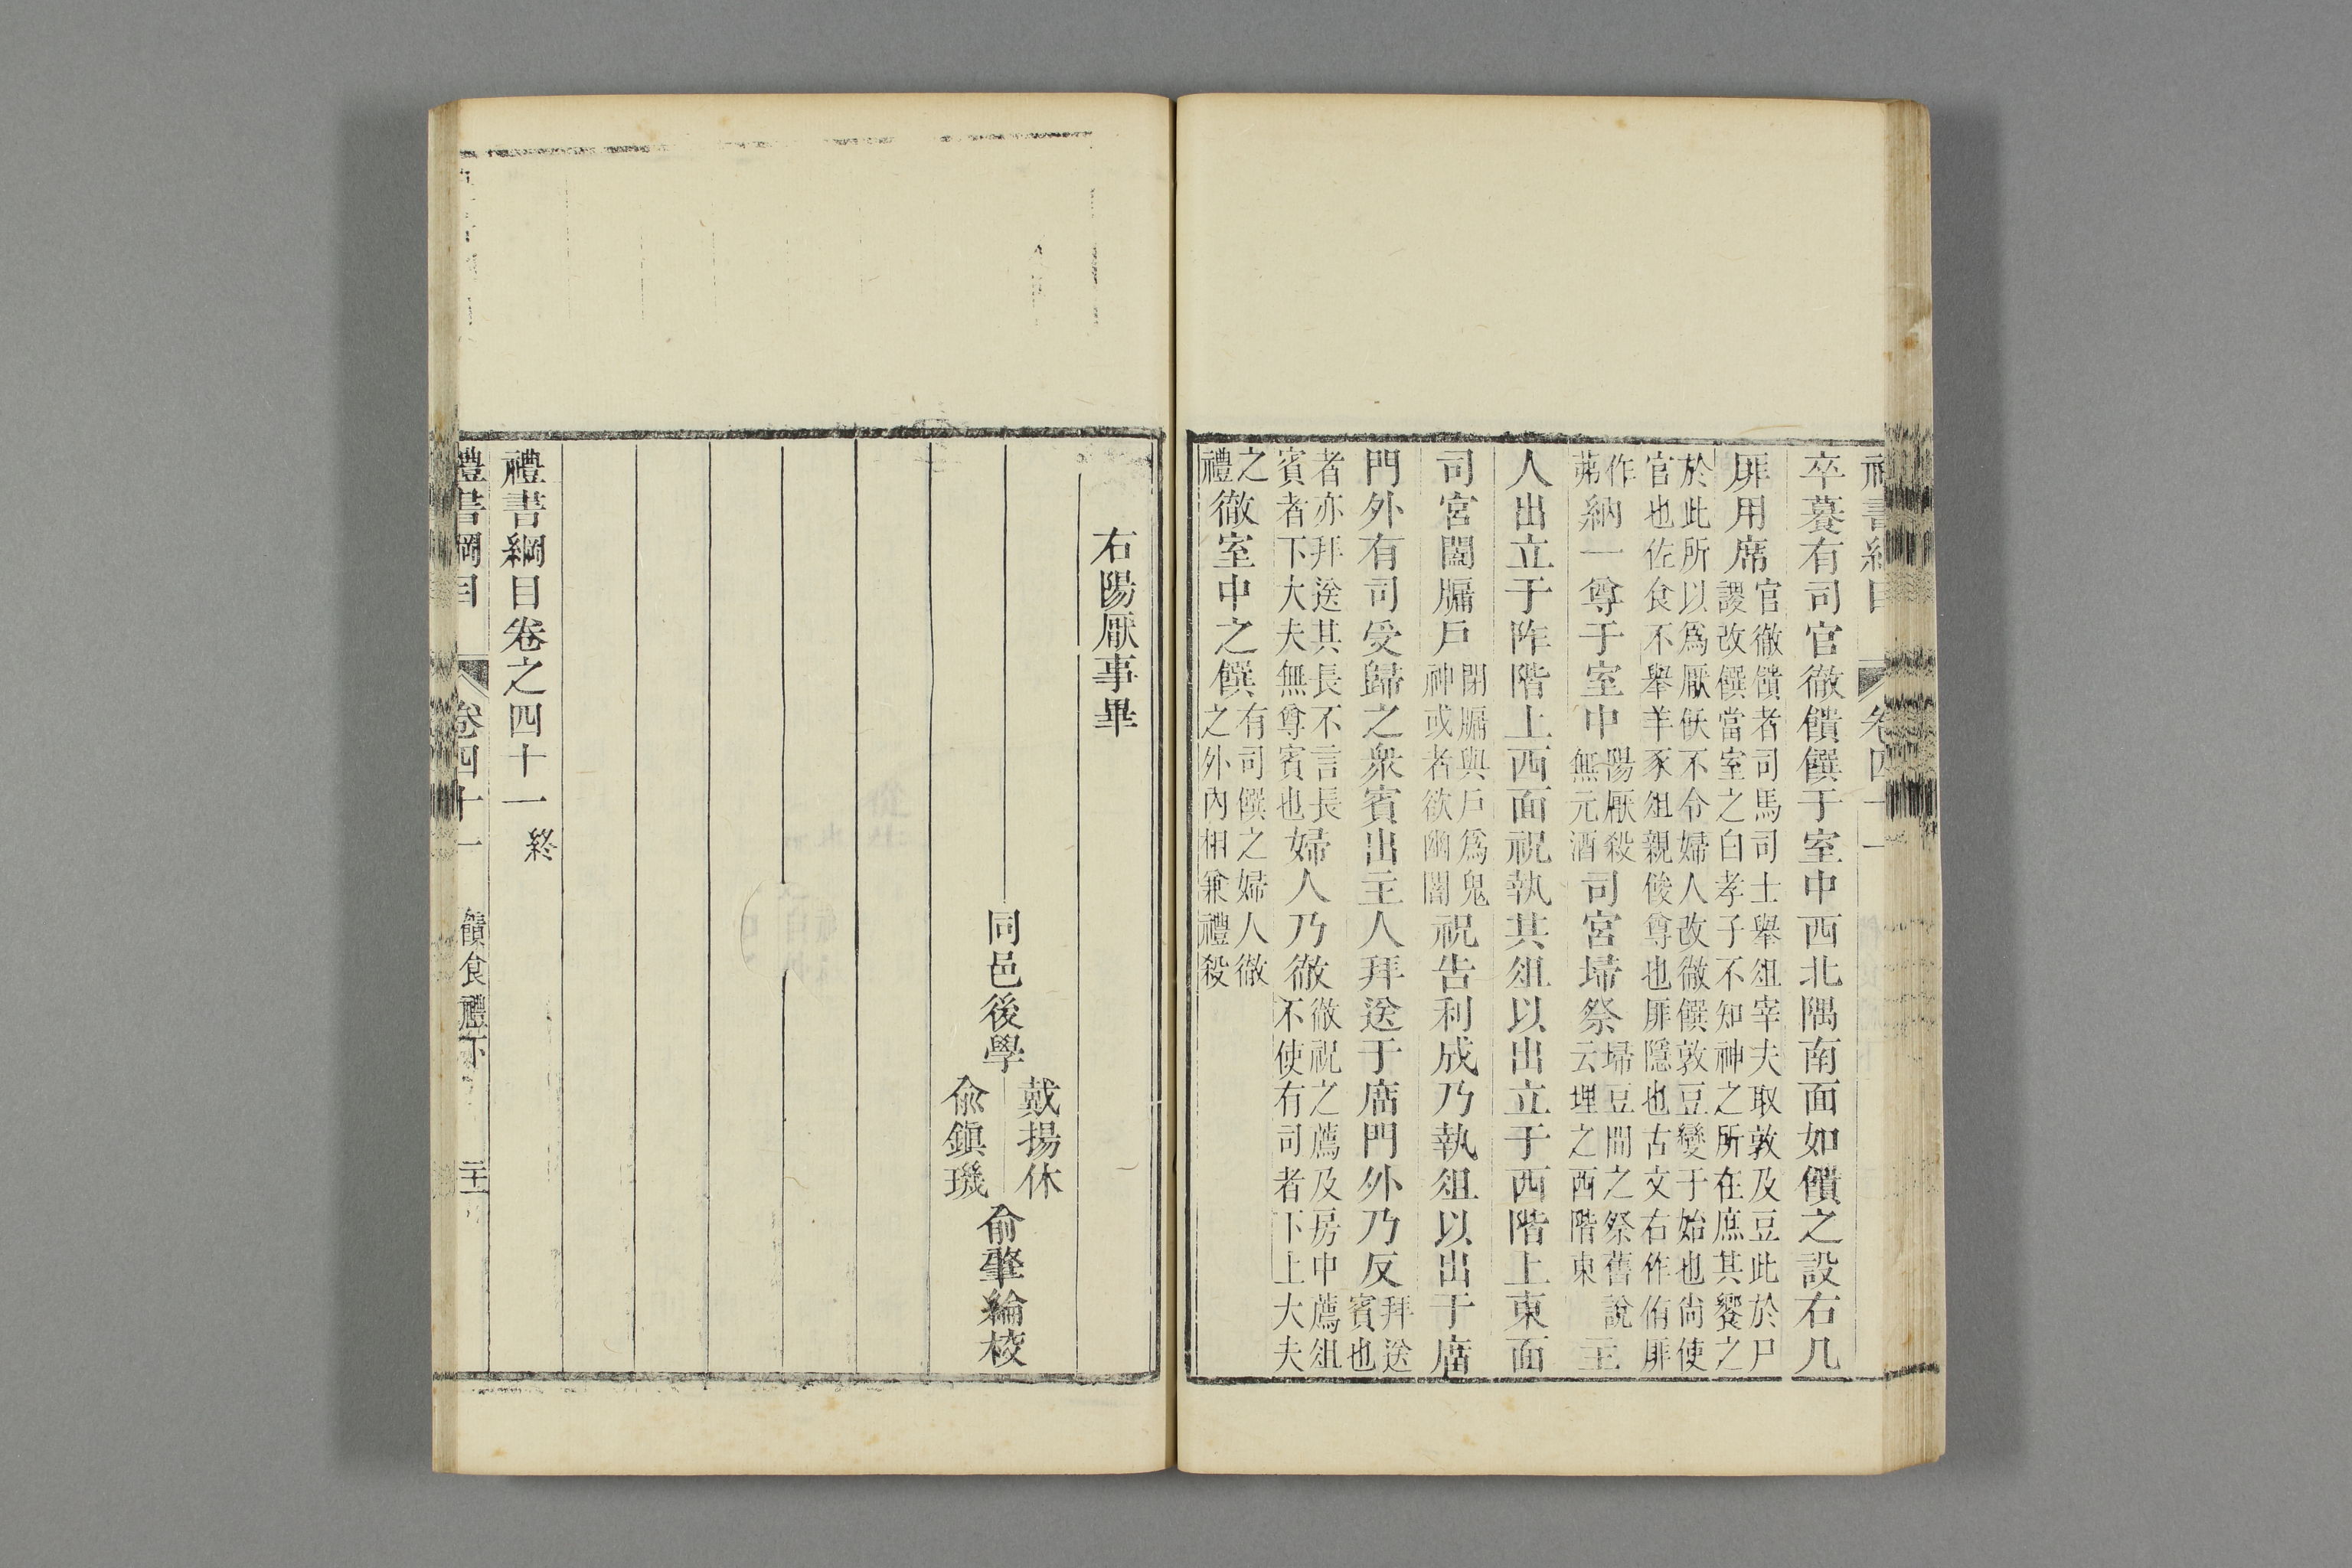 卒有司官徹饋饌于室中西北隅南面如饋之設右几
厞用席官徹饋者司馬司士舉俎宰夫取敦及豆此於尸謖改饌當室之白孝子不知神之所在庶其饗之
於此所以爲厭飫不令婦人改徹饌敦豆變于始也尚使官也佐食不舉羊豕俎親餕尊也厞隱也古文右作侑厞
作茀納一尊于室中陽厭殺無元酒司宮埽祭埽豆間之祭舊說云埋之西階東主
人出立于阼階上西面祝執其俎以出立于西階上東面
司宮闔牖戶閉牖與戶爲鬼神或者欲幽闇祝告利成乃執俎以出于庿
門外有司受歸之衆賓出主人拜送于庿門外乃反拜送賓也
者亦拜送其長不言長賓者下大夫無尊賓也婦人乃徹徹祝之薦及房中薦俎不使有司者下上大夫
之禮徹室中之饌有司饌之婦人徹之外內相兼禮殺
右陽厭事畢
同邑後學戴揚休俞鎮璣俞肇綸校
禮書綱目卷之四十一終
禮書綱目 卷四十一 饋食禮下